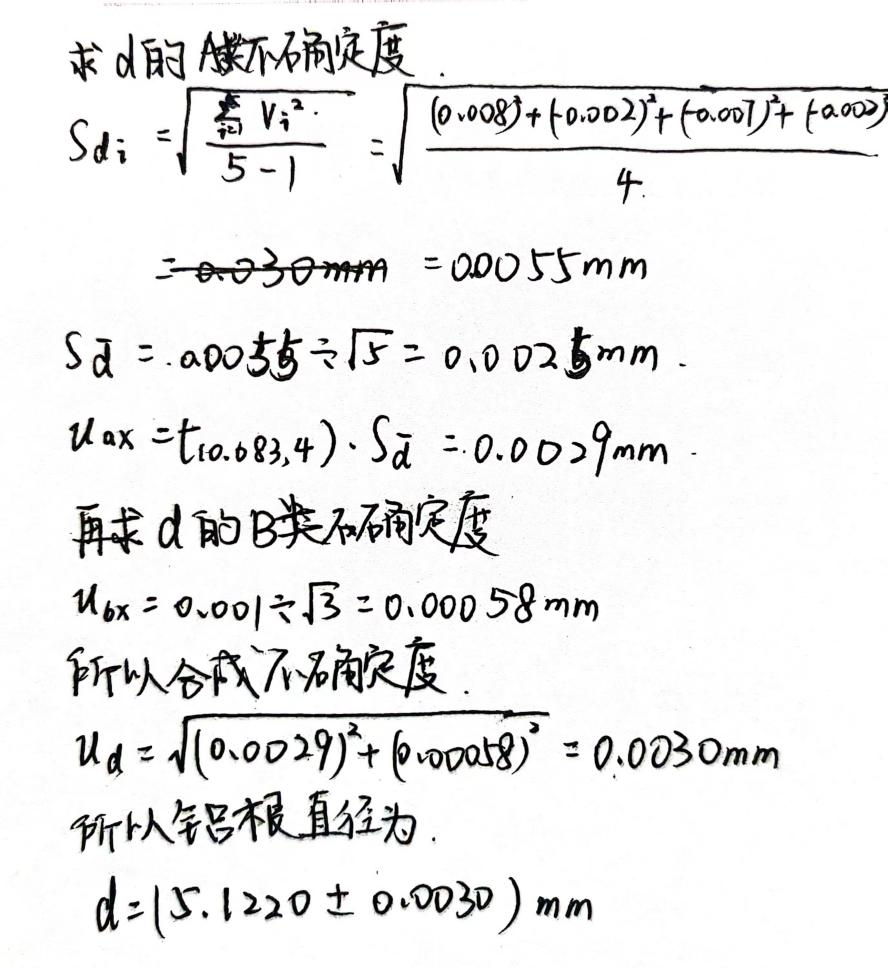 求d的A类不确定度.
S_{di} = √(∑_{i=1}^{5} V_i² / (5-1)) = √(((0.008)²+(-0.002)²+(-0.007)²+(-0.002)²) / 4)
= 0.0055mm
S_{d̄} = 0.0055÷√5 = 0.0025mm.
u_{ax} = t_{(0.683,4)}·S_{d̄} = 0.0029mm.
再求d的B类不确定度
u_{bx} = 0.001÷√3 = 0.00058mm
所以合成不确定度.
u_d = √((0.0029)²+(0.00058)²) = 0.0030mm
所以铝根直径为.
d=(5.1220±0.0030)mm